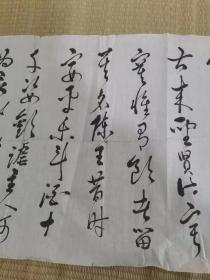 古来圣贤皆寂
寞惟有饮者留
其名陈王昔时
宴平乐斗酒十
千恣欢谑主人何